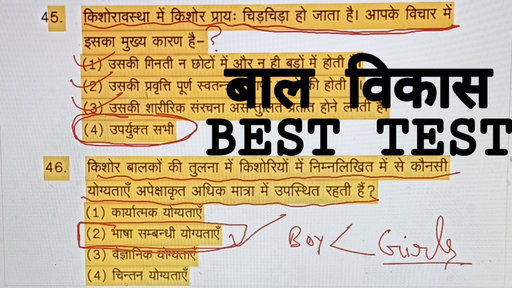 45. किशोरावस्था में किशोर प्रायः चिड़चिड़ा हो जाता है। आपके विचार में
इसका मुख्य कारण है- ?
(1) उसकी गिनती न छोटों में और न ही बड़ों में होती
(2) उसकी प्रवृत्ति पूर्ण स्वतन्त्र की होती
(3) उसकी शारीरिक संरचना असंतुलित प्रतीत होने लगती है
(4) उपर्युक्त सभी
बाल विकास
BEST TEST
46. किशोर बालकों की तुलना में किशोरियों में निम्नलिखित में से कौनसी
योग्यताएँ अपेक्षाकृत अधिक मात्रा में उपस्थित रहती हैं?
(1) कार्यात्मक योग्यताएँ
(2) भाषा सम्बन्धी योग्यताएँ
Boy < Girls
(3) वैज्ञानिक योग्यताएँ
(4) चिन्तन योग्यताएँ